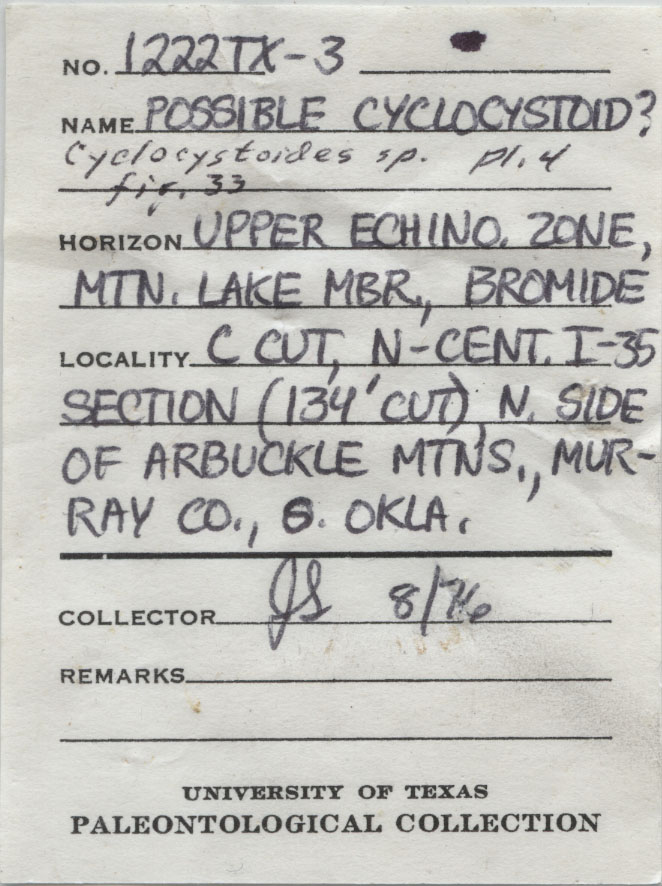 NO. 1222TX-3
NAME POSSIBLE CYCLOCYSTOID?
Cyclocystoides sp. pl. 4
fig. 33
HORIZON UPPER ECHINO. ZONE,
MTN. LAKE MBR., BROMIDE
LOCALITY C CUT, N-CENT. I-35
SECTION (134' CUT), N. SIDE
OF ARBUCKLE MTNS., MUR-
RAY CO., S. OKLA.
COLLECTOR JS 8/76
REMARKS
UNIVERSITY OF TEXAS
PALEONTOLOGICAL COLLECTION